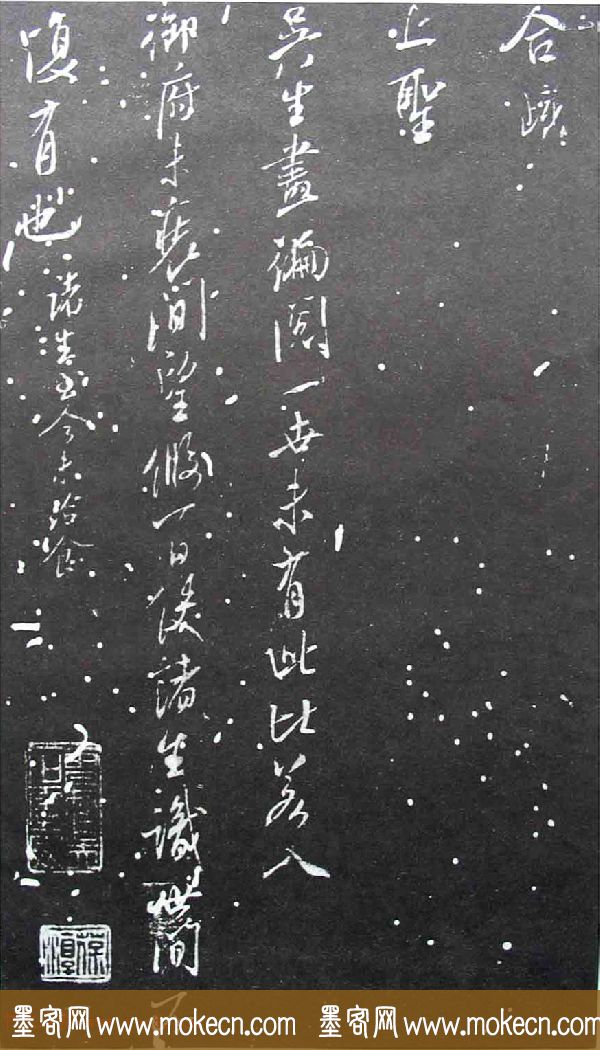 合疏
上聖
吳生畫徧閱一世未有此比若入
御府未裝間望假一日後諸生識世間
復有也諸生至今未給食
墨客网 www.mokecn.com 墨客网 www.mokecn.com